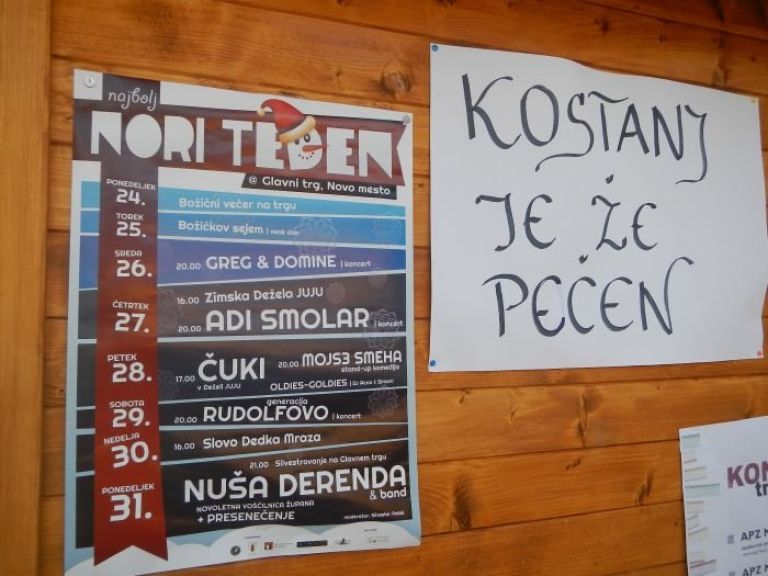 najbolj
NORI TEDEN
@ Glavni trg, Novo mesto
PONEDELJEK
24.
Božični večer na trgu
TOREK
25.
Božičkov sejem | vsak dan
SREDA
26.
20.00 GREG & DOMINE | koncert
ČETRTEK
27.
16.00 Zimska Dežela JUJU
20.00 ADI SMOLAR | koncert
PETEK
28.
17.00 ČUKI
v Deželi JUJU
20.00 MOJS3 SMEHA
stand-up komedija
OLDIES-GOLDIES
SOBOTA
29.
generacija
20.00 RUDOLFOVO | koncert
NEDELJA
30.
16.00 Slovo Dedka Mraza
PONEDELJEK
31.
21.00 Silvestrovanje na Glavnem trgu
NUŠA DERENDA
& band
NOVOLETNA VOŠČILNICA ŽUPANA
+ PRESENEČENJE
moderator:
KOSTANJ
JE ŽE
PEČEN
KON
tr
APZ
APZ